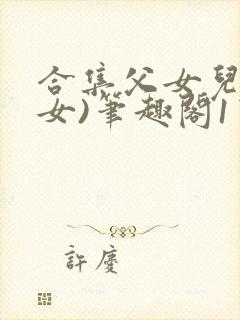 合集父女兒
女)筆趣閣1
許慶